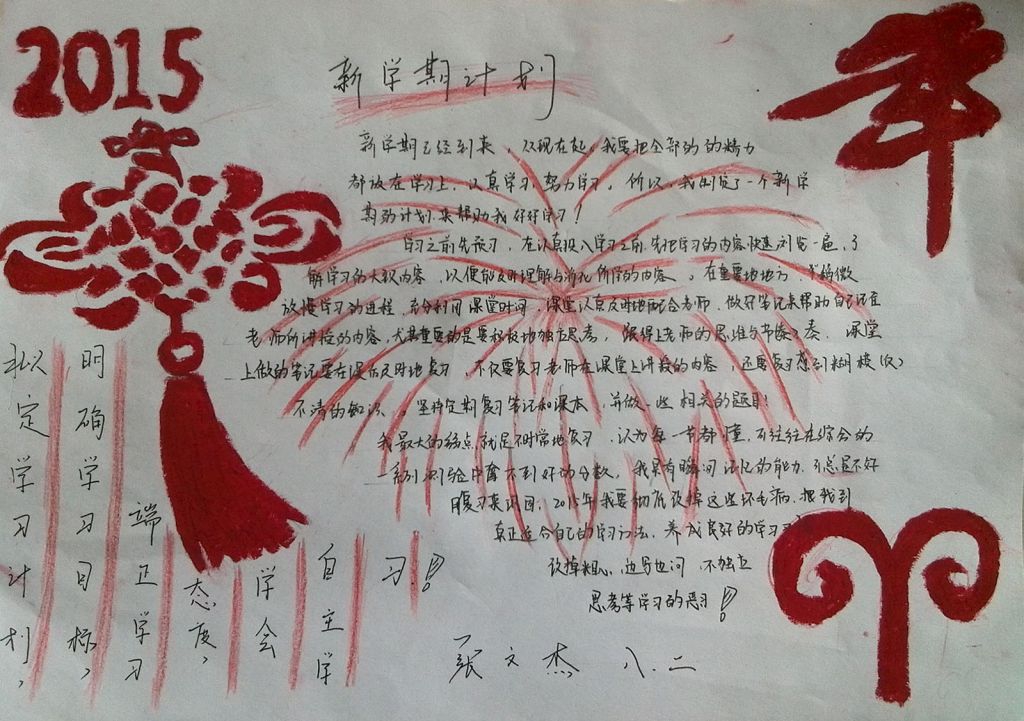 2015
年
新学期计划
新学期已经到来，从现在起，我要把全部的的精力
都放在学习上，认真学习，努力学习。所以，我制定了一个新学
期的计划来帮助我好好学习！
学习之前先预习，在认真投入学习之前，先把学习的内容快速浏览一遍，了
解学习的大致内容，以便能及时理解与消化所学的内容。在重要地方，稍微
放慢学习的进程，充分利用课堂时间，课堂认真及时地配合老师，做好笔记来帮助自己记住
老师所讲授的内容，尤其重要的是要积极地独立思考，跟得上老师的思维与节奏。课堂
上做的笔记要在课后及时地复习，不仅要复习老师在课堂上讲授的内容，还要复习感到模糊
不清的知识。坚持定期复习笔记和课本，并做一些相关的题目！
我最大的弱点就是不时常地复习，认为每一节都懂，可往往在综合的
一系列测验中拿不到好的分数，我是有瞬间记忆的能力，可总是不好
复习来巩固，2015年我要彻底改掉这些坏毛病，把找到
真正适合自己的学习方法，养成良好的学习
改掉粗心，边写边问，不独立
思考等学习的恶习！
认定学习计划，
明确学习目标，
端正学习
态度，
学会
自主学
习！
张文杰 八.二